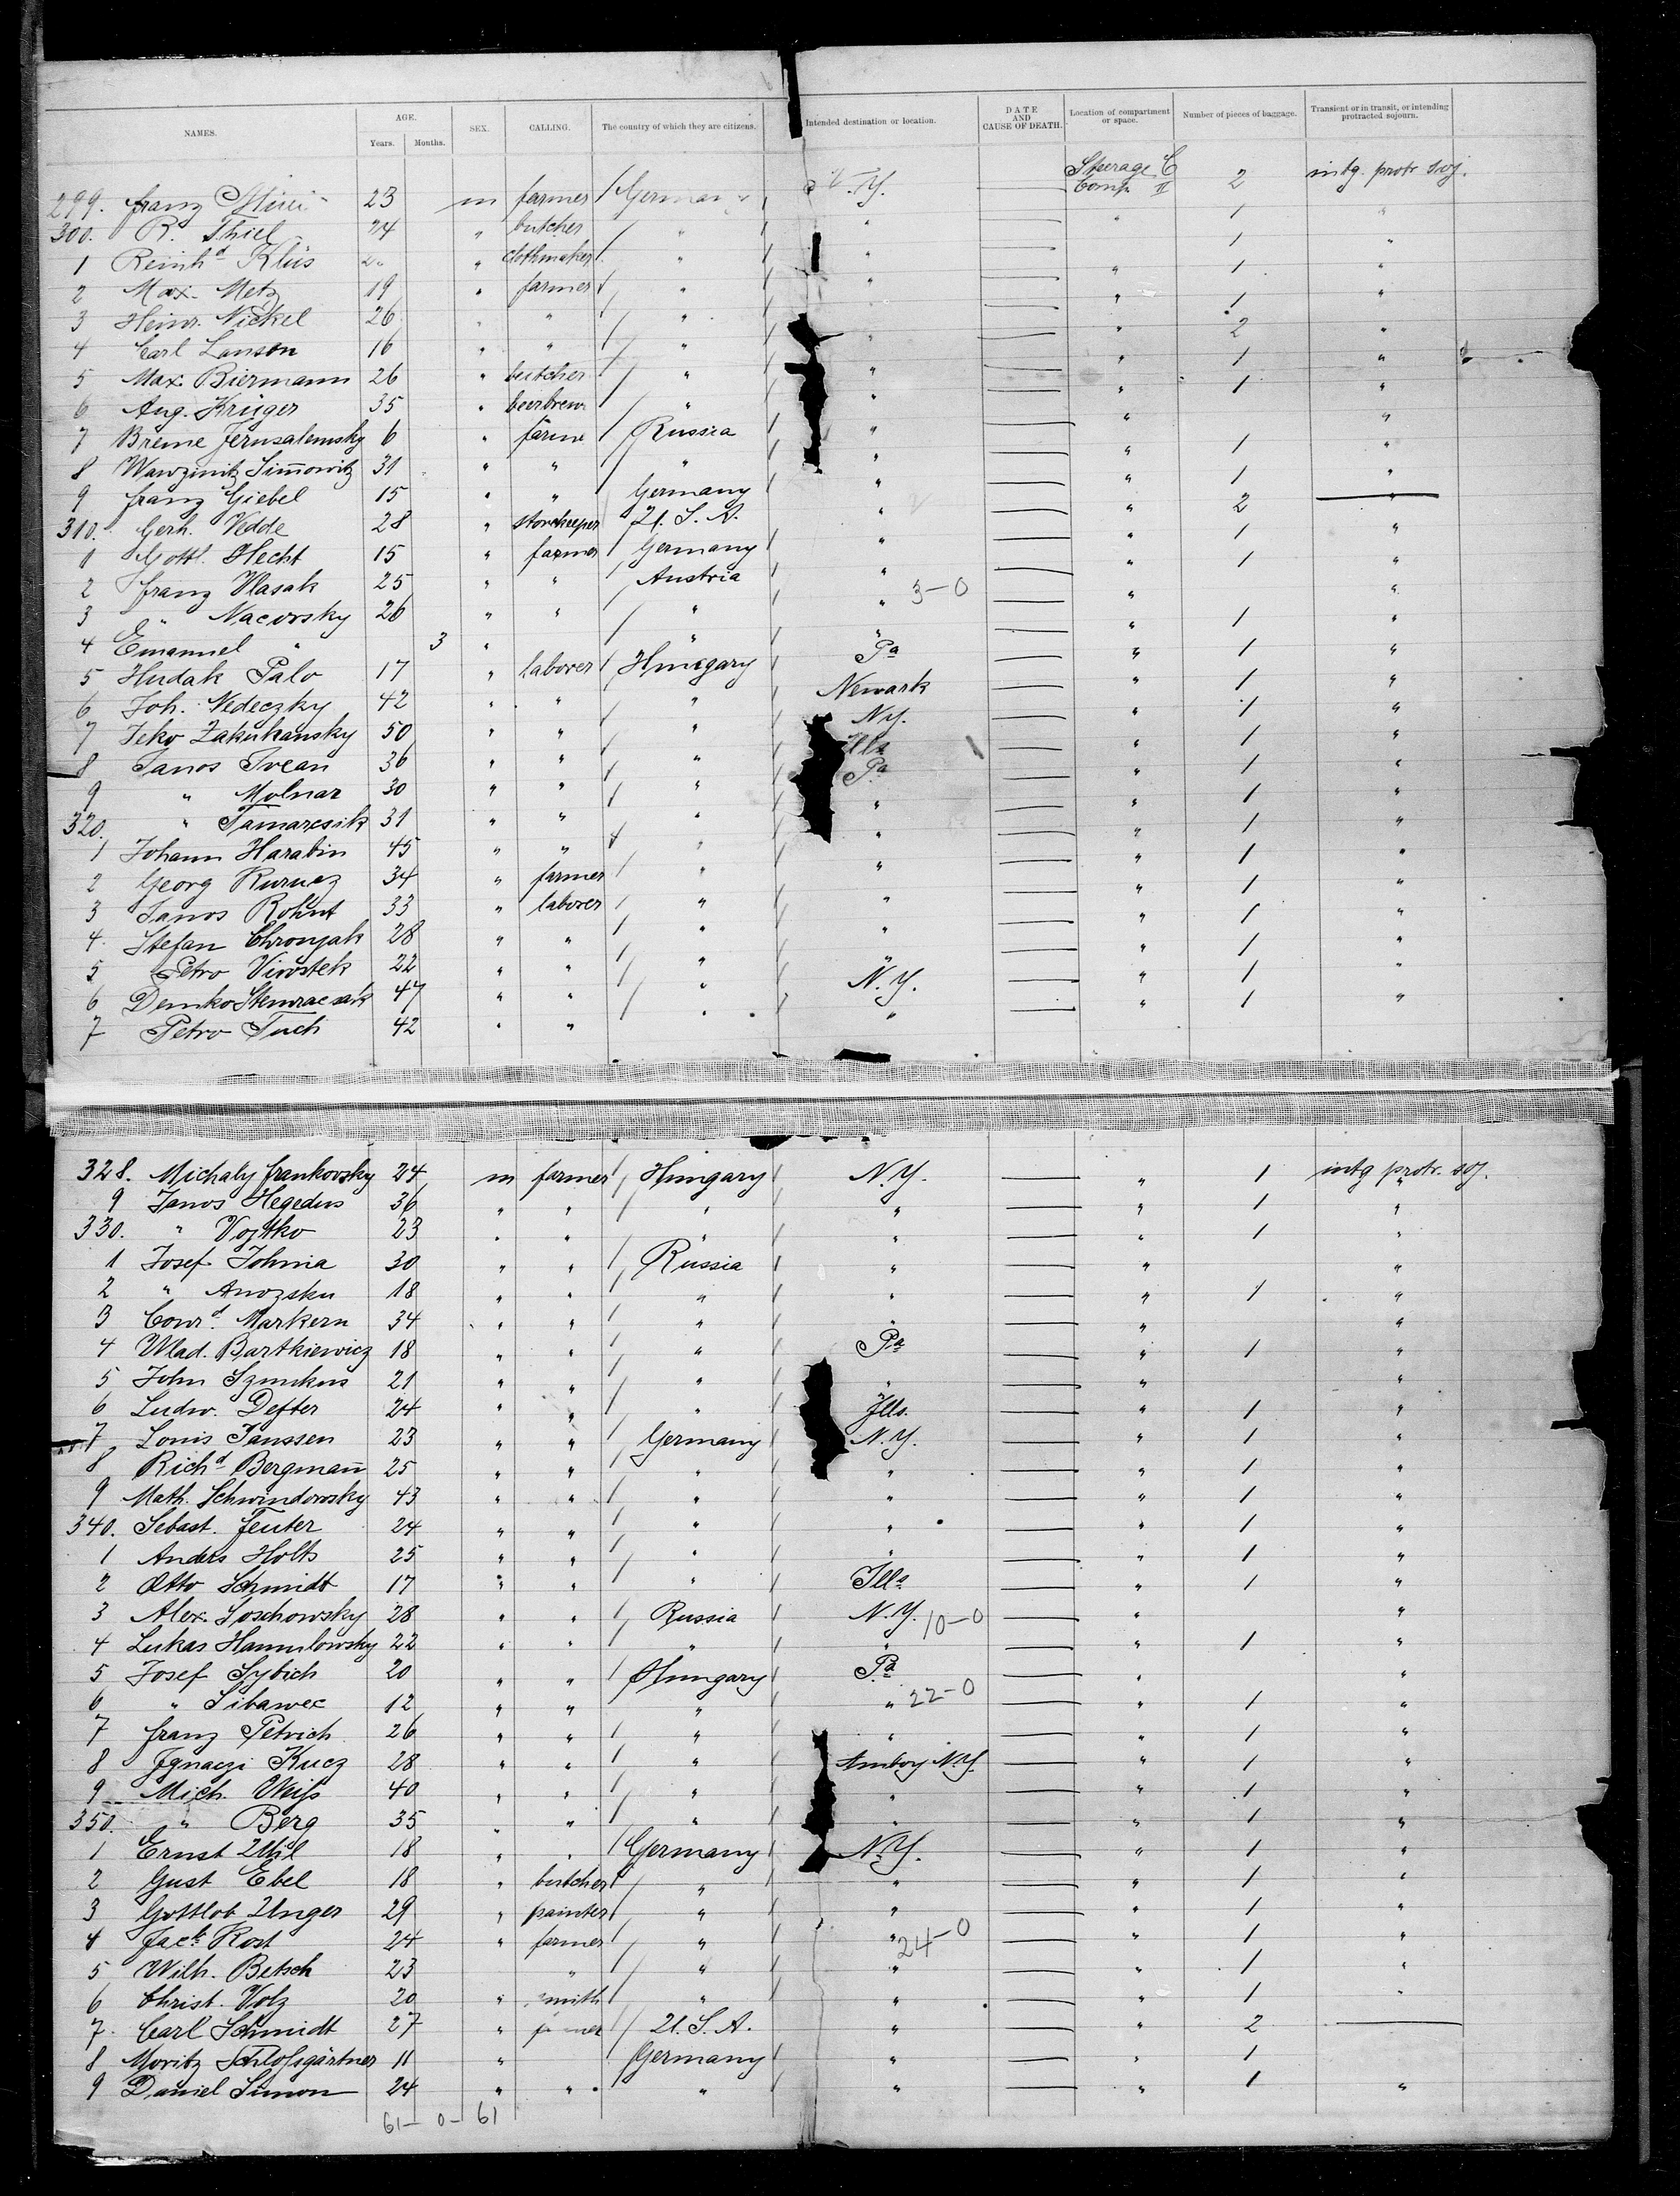 NAMES. AGE. Years. Months. SEX. CALLING. The country of which they are citizens. Intended destination or location. DATE AND CAUSE OF DEATH. Location of compartment or space. Number of pieces of baggage. Transient or in transit, or intending protracted sojourn.
299. Franz 23 m farmer Germany N.Y. Steerage C Comp II 2 intg. protr soj.
300. R. Thiel 24 " butcher " " " 1 "
1 Reinhd Klüs " clothmaker " " 1 "
2 Max Metz 19 " farmer " " " 1 "
3 Heinr. Nickel 26 " " " " 1 "
4 Carl Lanson 16 " " " " " 2 "
5 Max Biermann 26 " butcher " " " 1 "
6 Aug. Krüger 35 " beerbrewr " " " 1 "
7 Breine Jerusalemsky 6 " farme Russia " " "
8 Wawzinitz Simowitz 31 " " " " " 1 "
9 Franz Giebel 15 " " Germany " " 1 "
310. Gerh. Vedde 28 " storekeeper U.S.A. " " 2 —
1 Gottl. Hecht 15 " farmer Germany " " 1 "
2 Franz Vlasak 25 " " Austria " 3-0 " 1 "
3 " Nacovsky 26 " " " " " "
4 Emanuel " 3 " " " " 1 "
5 Hudak Palo 17 " laborer Hungary Pa " 1 "
6 Joh. Vedeczky 42 " " " Newark " 1 "
7 Jeko Zakuhansky 50 " " " N.Y. " 1 "
8 Janos Ivean 36 " " " Ills " 1 "
9 " Molnar 30 " " " Pa " 1 "
320. " Tamarcsik 31 " " " " " 1 "
1 Johann Harabin 45 " " " " " 1 "
2 Georg Kurucz 34 " farmer " " " 1 "
3 Janos Rohut 33 " laborer " " " 1 "
4. Stefan Chronjak 28 " " " " " 1 "
5 Petro Virostek 22 " " " " " 1 "
6 Demko 47 " " " N.Y. " 1 "
7 Petro Tuch 42 " " " " " 1 "
328. Michaly Frankovsky 24 m farmer Hungary N.Y. " 1 intg protr. soj.
9 Janos Hegedus 36 " " " " " 1 "
330. " Vojtko 23 " " " " " 1 "
1 Josef Johnia 30 " " Russia " " "
2 " Anozsku 18 " " " " " 1 "
3 Conrd. Markern 34 " " " " " "
4 Wlad. Bartkiewicz 18 " " " Pa " 1 "
5 John Szimkus 21 " " " " " "
6 Ludw. Defter 24 " " " Ills. " 1 "
7 Louis Janssen 23 " " Germany N.Y. " 1 "
8 Richd Bergmann 25 " " " " " 1 "
9 Math. Schwindowsky 43 " " " " " 1 "
340. Sebast. Feuter 24 " " " " " 1 "
1 Anders Holts 25 " " " " " 1 "
2 Otto Schmidt 17 " " " Ills " 1 "
3 Alex. Soschowsky 28 " " Russia N.Y. 10-0 " "
4 Lukas Hamulowsky 22 " " " " " 1 "
5 Josef Sybich 20 " " Hungary Pa " "
6 " Sibawec 12 " " " " 22-0 " 1 "
7 Franz Petrich 26 " " " " " 1 "
8 Ignaczi Kucz 28 " " " Amboy N.Y. " 1 "
9 Mich. Weiss 40 " " " " " 1 "
350. " Berg 35 " " " " " 1 "
1 Ernst Uhl 18 " " Germany N.Y. " 1 "
2 Gust Ebel 18 " butcher " " " 1 "
3 Gottlob Unger 29 " painter " " " 1 "
4 Jacb Rost 24 " farmer " " 24-0 " 1 "
5 Wilh. Betsch 23 " " " " 1 "
6 Christ. Volz 20 " smith " " " 1 "
7. Carl Schmidt 27 " farmer U.S.A. " " 2 —
8 Moritz Schlossgärtner 11 " Germany " " 1
9 Daniel Simon 24 " " " " " 1 "
61- 0- 61